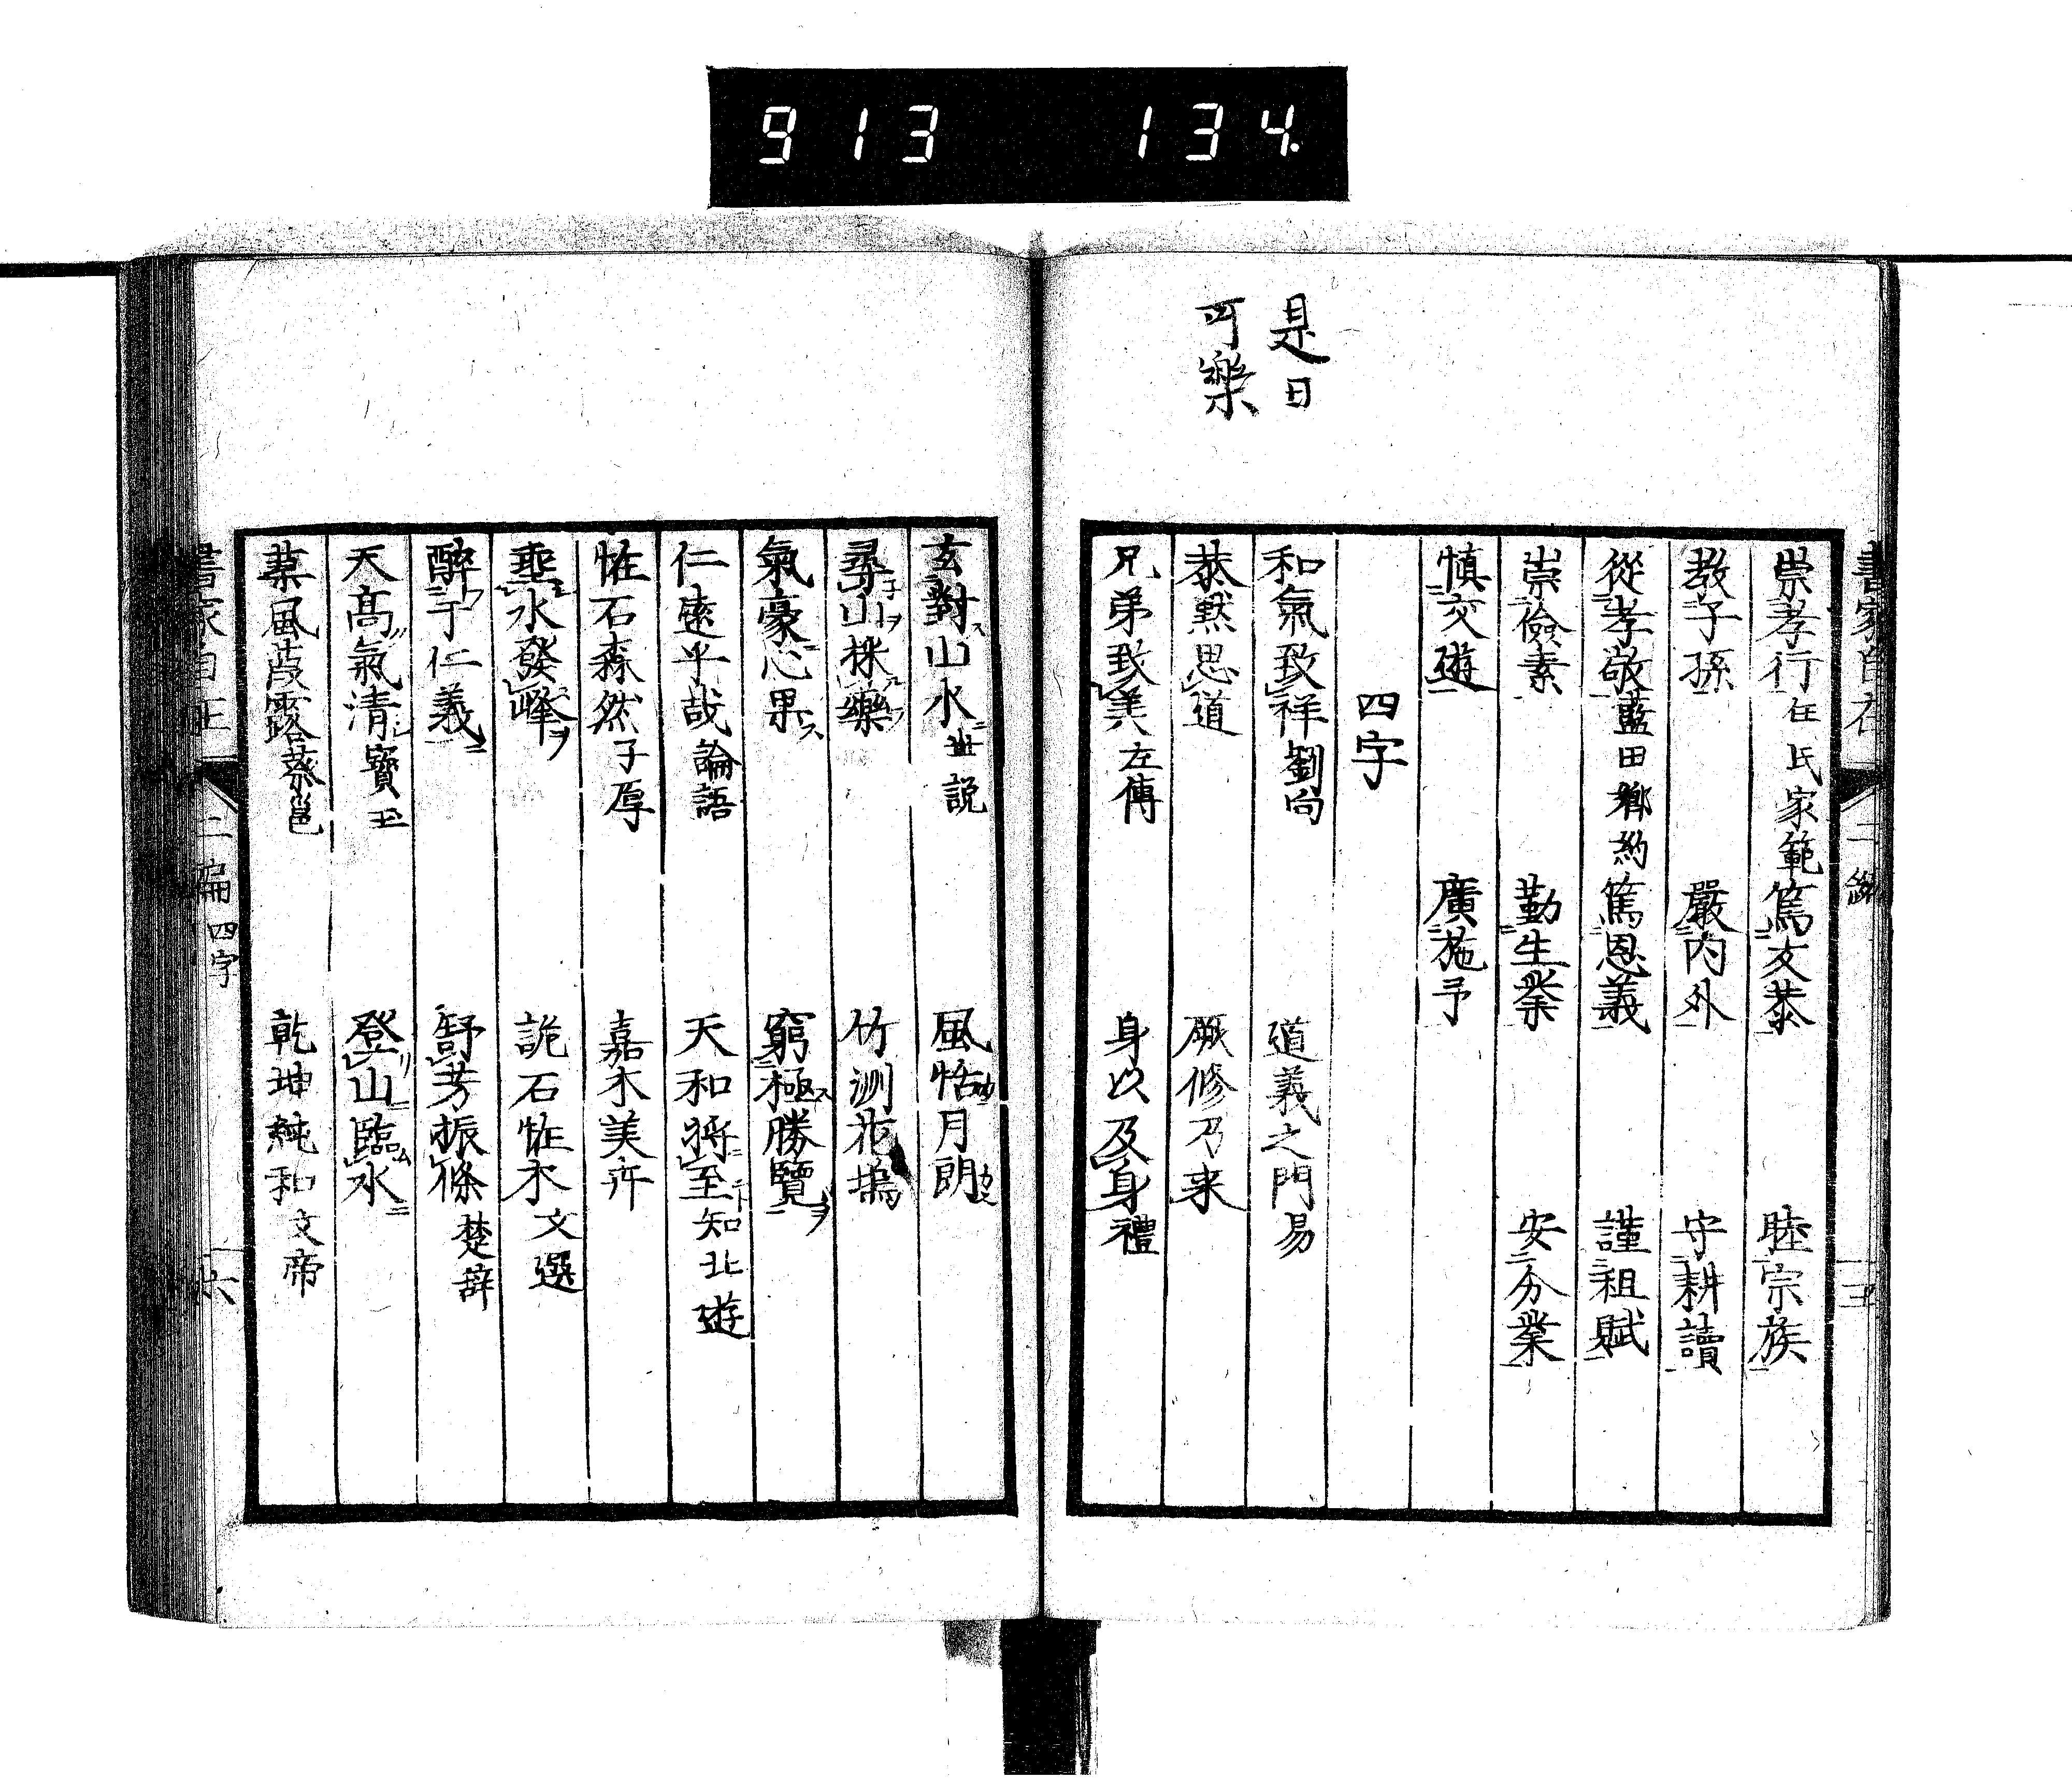 913 134.
是日
可樂
崇孝行 在氏家範 篤文恭 睦宗族
教子孫 嚴内外 守耕讀
從孝敬 藍田鄉約 篤恩義 謹租賦
崇儉素 勤生業 安分業
慎交遊 廣施予
四字
和氣致祥 劉向 道義之門 易
恭黙思道 厥修乃来
兄弟致美 左傳 身以及身 禮
玄對山水 世説 風恬月朗
尋山採藥 竹洲花塢
氣豪心果 窮極勝覽
仁遠乎哉 論語 天和將至 知北遊
恠石森然 子厚 嘉木美卉
垂水發峰 詭石恠木 文選
醉于仁義 舒芳振條 楚辞
天高氣清 寶玉 登山臨水
葉風葭露 蔡邕 乾坤純和 文帝
二編 四字 六